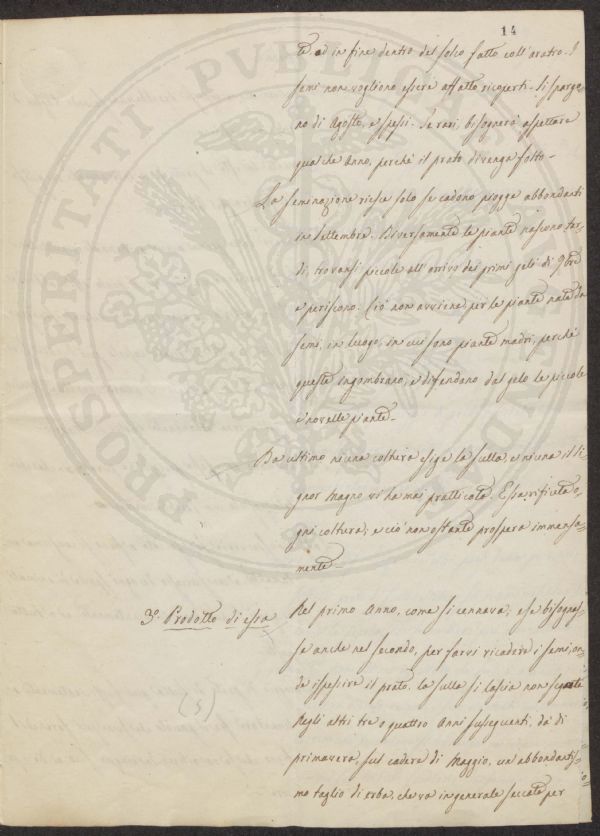 14
te ad in fine dentro del solco fatto coll'aratro. I
semi non vogliono essere affatto ricoperti. Si sparga-
no di Agosto, e spessi. Se rari, bisognerà aspettare
qualche Anno, perché il prato divenga folto.
La seminazione riesce solo se cadono piogge abbondanti
in Settembre. Diversamente le piante nascono tar-
di, trovansi piccole all'arrivo dei primi geli di 9bre
e periscono. Ciò non avviene per le piante nate da
semi, in luogo, in cui sono piante madri, perché
queste ingombrano, e difendono dal gelo le piccole
e novelle piante.
Da ultimo niuna coltura esige la sulla, e niuna il Si-
gnor Magno vi ha mai pratticata. Essa rifiuta o-
gni coltura, e ciò non ostante prospera immensa-
mente.
3º Prodotto di essa
Nel primo Anno, come si cennava, e se bisognas-
se anche nel secondo, per farvi ricadere i semi, on-
de ispessire il prato, la sulla si lascia non segata
Negli altri tre o quattro Anni susseguenti, dà di
(5)
primavera, sul cadere di Maggio, un'abbondantis-
mo taglio di erba, che va in generale seccata per
PROSPERITATI PUBLICAE AUGENDAE